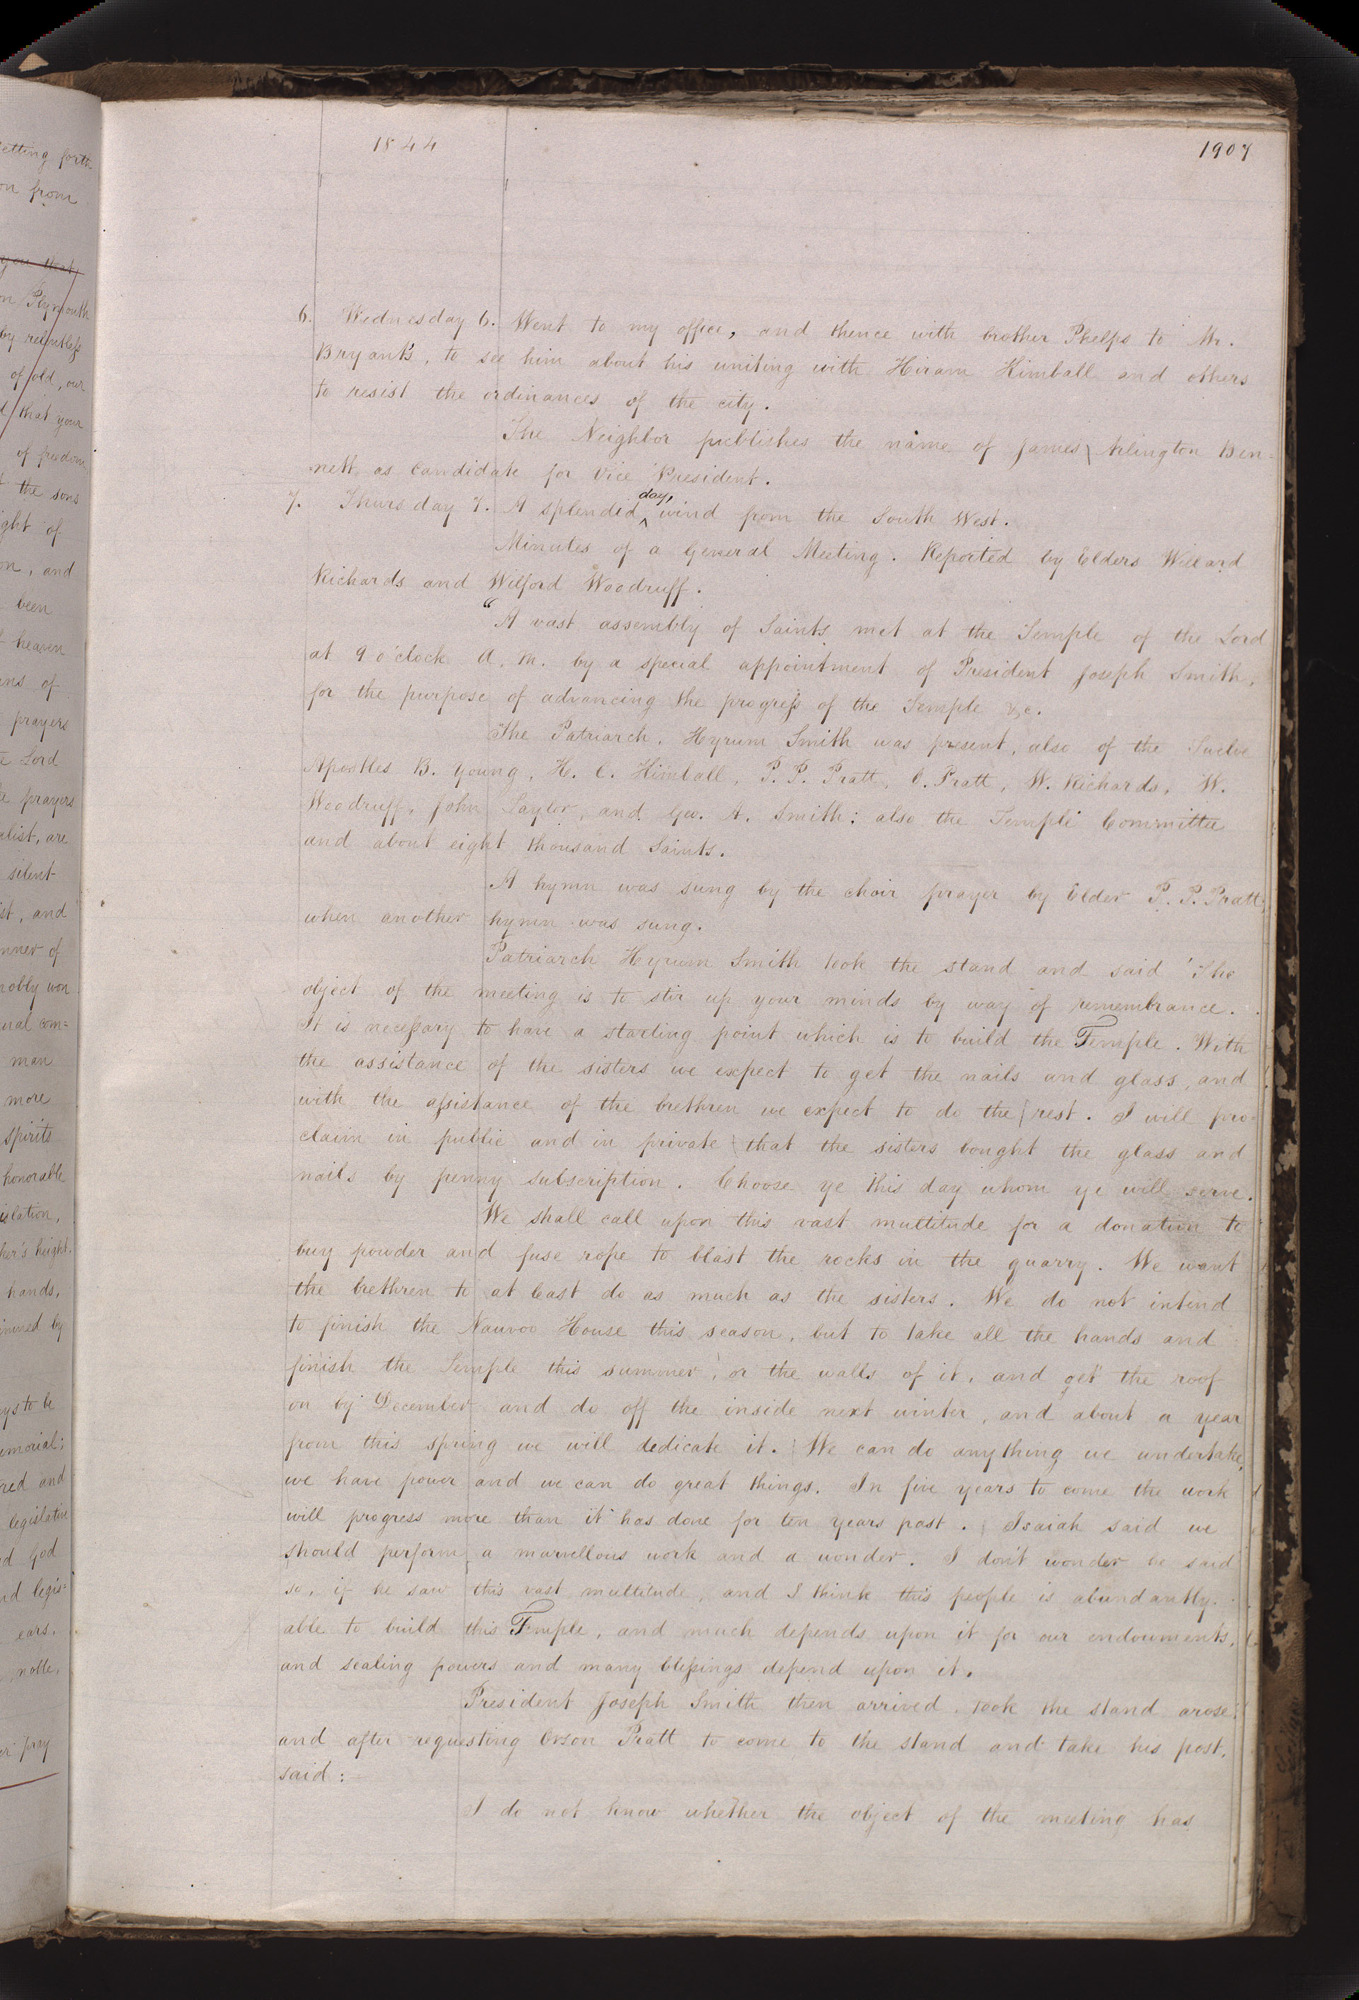 1844
1907
6. Wednesday 6. Went to my office, and thence with brother Phelps to Mr.
Bryant's, to see him about his uniting with Hiram Kimball and others
to resist the ordinances of the city.
The Neighbor publishes the name of James Arlington Ben-
nett as candidate for Vice President.
7. Thursday 7. A splendid day, wind from the South West.
Minutes of a General Meeting. Reported by Elders Willard
Richards and Wilford Woodruff.
"A vast assembly of Saints met at the Temple of the Lord
at 9 o'clock A. M. by a special appointment of President Joseph Smith,
for the purpose of advancing the progress of the Temple &c.
The Patriarch, Hyrum Smith was present, also of the Twelve
Apostles B. Young, H. C. Kimball, P. P. Pratt, O. Pratt, W. Richards, W.
Woodruff, John Taylor, and Geo. A. Smith; also the Temple Committee
and about eight thousand Saints.
A hymn was sung by the choir prayer by Elder P. P. Pratt,
when another hymn was sung.
Patriarch Hyrum Smith took the stand and said 'The
object of the meeting is to stir up your minds by way of remembrance.
It is necessary to have a starting point which is to build the Temple. With
the assistance of the sisters we expect to get the nails and glass, and
with the assistance of the brethren we expect to do the rest. I will pro-
claim in public and in private that the sisters bought the glass and
nails by penny subscription. Choose ye this day whom ye will serve.
We shall call upon this vast multitude for a donation to
buy powder and fuse rope to blast the rocks in the quarry. We want
the brethren to at least do as much as the sisters. We do not intend
to finish the Nauvoo House this season, but to take all the hands and
finish the Temple this summer, or the walls of it, and get the roof
on by December and do off the inside next winter, and about a year
from this spring we will dedicate it. We can do anything we undertake,
we have power and we can do great things. In five years to come the work
will progress more than it has done for ten years past. Isaiah said we
should perform a marvellous work and a wonder. I don't wonder he said
so, if he saw this vast multitude, and I think this people is abundantly
able to build this Temple, and much depends upon it for our endowments,
and sealing powers and many blessings depend upon it.
President Joseph Smith then arrived, took the stand arose
and after requesting Orson Pratt to come to the stand and take his post,
said:
I do not know whether the object of the meeting has